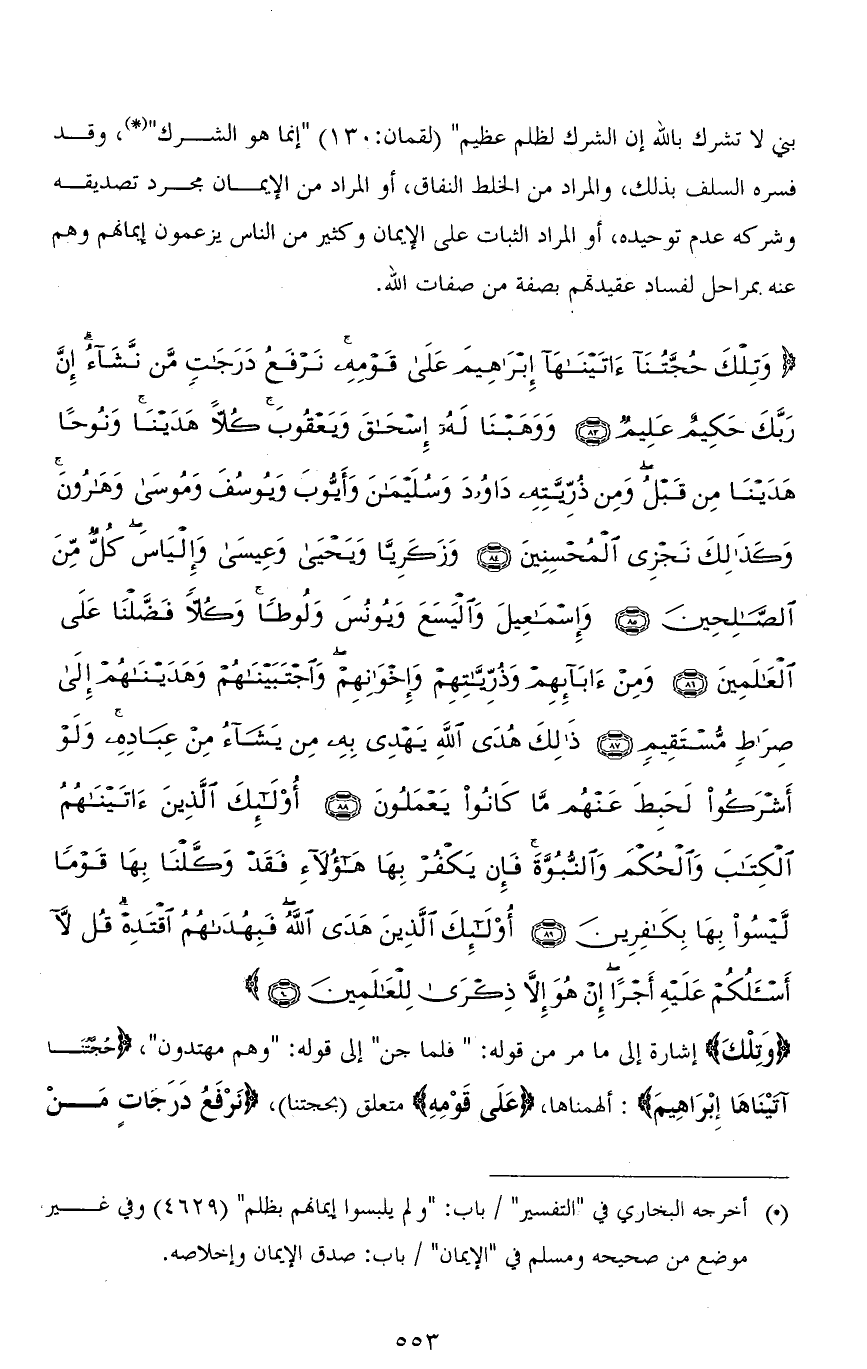 بني لا تشرك بالله إن الشرك لظلم عظيم" (لقمان:١٣٠) "إنما هو الشـــرك"(*)، وقـــد
فسره السلف بذلك، والمراد من الخلط النفاق، أو المراد من الإيمـــان مجـــرد تصديقـــه
وشركه عدم توحيده، أو المراد الثبات على الإيمان وكثير من الناس يزعمون إيمانهم وهم
عنه بمراحل لفساد عقيدتهم بصفة من صفات الله.
﴿ وَتِلْكَ حُجَّتُنَآ ءَاتَيْنَـٰهَآ إِبْرَٰهِيمَ عَلَىٰ قَوْمِهِۦ ۚ نَرْفَعُ دَرَجَـٰتٍ مَّن نَّشَآءُ ۗ إِنَّ
رَبَّكَ حَكِيمٌ عَلِيمٌ ٨٣ وَوَهَبْنَا لَهُۥٓ إِسْحَـٰقَ وَيَعْقُوبَ ۚ كُلًّا هَدَيْنَا ۚ وَنُوحًا
هَدَيْنَا مِن قَبْلُ ۖ وَمِن ذُرِّيَّتِهِۦ دَاوُۥدَ وَسُلَيْمَـٰنَ وَأَيُّوبَ وَيُوسُفَ وَمُوسَىٰ وَهَـٰرُونَ ۚ
وَكَذَٰلِكَ نَجْزِى ٱلْمُحْسِنِينَ ٨٤ وَزَكَرِيَّا وَيَحْيَىٰ وَعِيسَىٰ وَإِلْيَاسَ ۖ كُلٌّ مِّنَ
ٱلصَّـٰلِحِينَ ٨٥ وَإِسْمَـٰعِيلَ وَٱلْيَسَعَ وَيُونُسَ وَلُوطًا ۚ وَكُلًّا فَضَّلْنَا عَلَى
ٱلْعَـٰلَمِينَ ٨٦ وَمِنْ ءَابَآئِهِمْ وَذُرِّيَّـٰتِهِمْ وَإِخْوَٰنِهِمْ ۖ وَٱجْتَبَيْنَـٰهُمْ وَهَدَيْنَـٰهُمْ إِلَىٰ
صِرَٰطٍ مُّسْتَقِيمٍ ٨٧ ذَٰلِكَ هُدَى ٱللَّهِ يَهْدِى بِهِۦ مَن يَشَآءُ مِنْ عِبَادِهِۦ ۚ وَلَوْ
أَشْرَكُوا۟ لَحَبِطَ عَنْهُم مَّا كَانُوا۟ يَعْمَلُونَ ٨٨ أُو۟لَـٰٓئِكَ ٱلَّذِينَ ءَاتَيْنَـٰهُمُ
ٱلْكِتَـٰبَ وَٱلْحُكْمَ وَٱلنُّبُوَّةَ ۚ فَإِن يَكْفُرْ بِهَا هَـٰٓؤُلَآءِ فَقَدْ وَكَّلْنَا بِهَا قَوْمًا
لَّيْسُوا۟ بِهَا بِكَـٰفِرِينَ ٨٩ أُو۟لَـٰٓئِكَ ٱلَّذِينَ هَدَى ٱللَّهُ ۖ فَبِهُدَىٰهُمُ ٱقْتَدِهْ ۗ قُل لَّآ
أَسْـَٔلُكُمْ عَلَيْهِ أَجْرًا ۖ إِنْ هُوَ إِلَّا ذِكْرَىٰ لِلْعَـٰلَمِينَ ٩٠ ﴾
﴿وَتِلْكَ﴾ إشارة إلى ما مر من قوله: " فلما جن" إلى قوله: "وهم مهتدون"، ﴿حُجَّتُنَـــا
آتَيْنَاهَا إِبْرَاهِيمَ﴾ : ألهمناها، ﴿عَلَى قَوْمِهِ﴾ متعلق (بحجتنا)، ﴿نَرْفَعُ دَرَجَاتٍ مَـــنْ
(*) أخرجه البخاري في "التفسير" / باب: "ولم يلبسوا إيمانهم بظلم" (٤٦٢٩) وفي غـــير
موضع من صحيحه ومسلم في "الإيمان" / باب: صدق الإيمان وإخلاصه.
٥٥٣